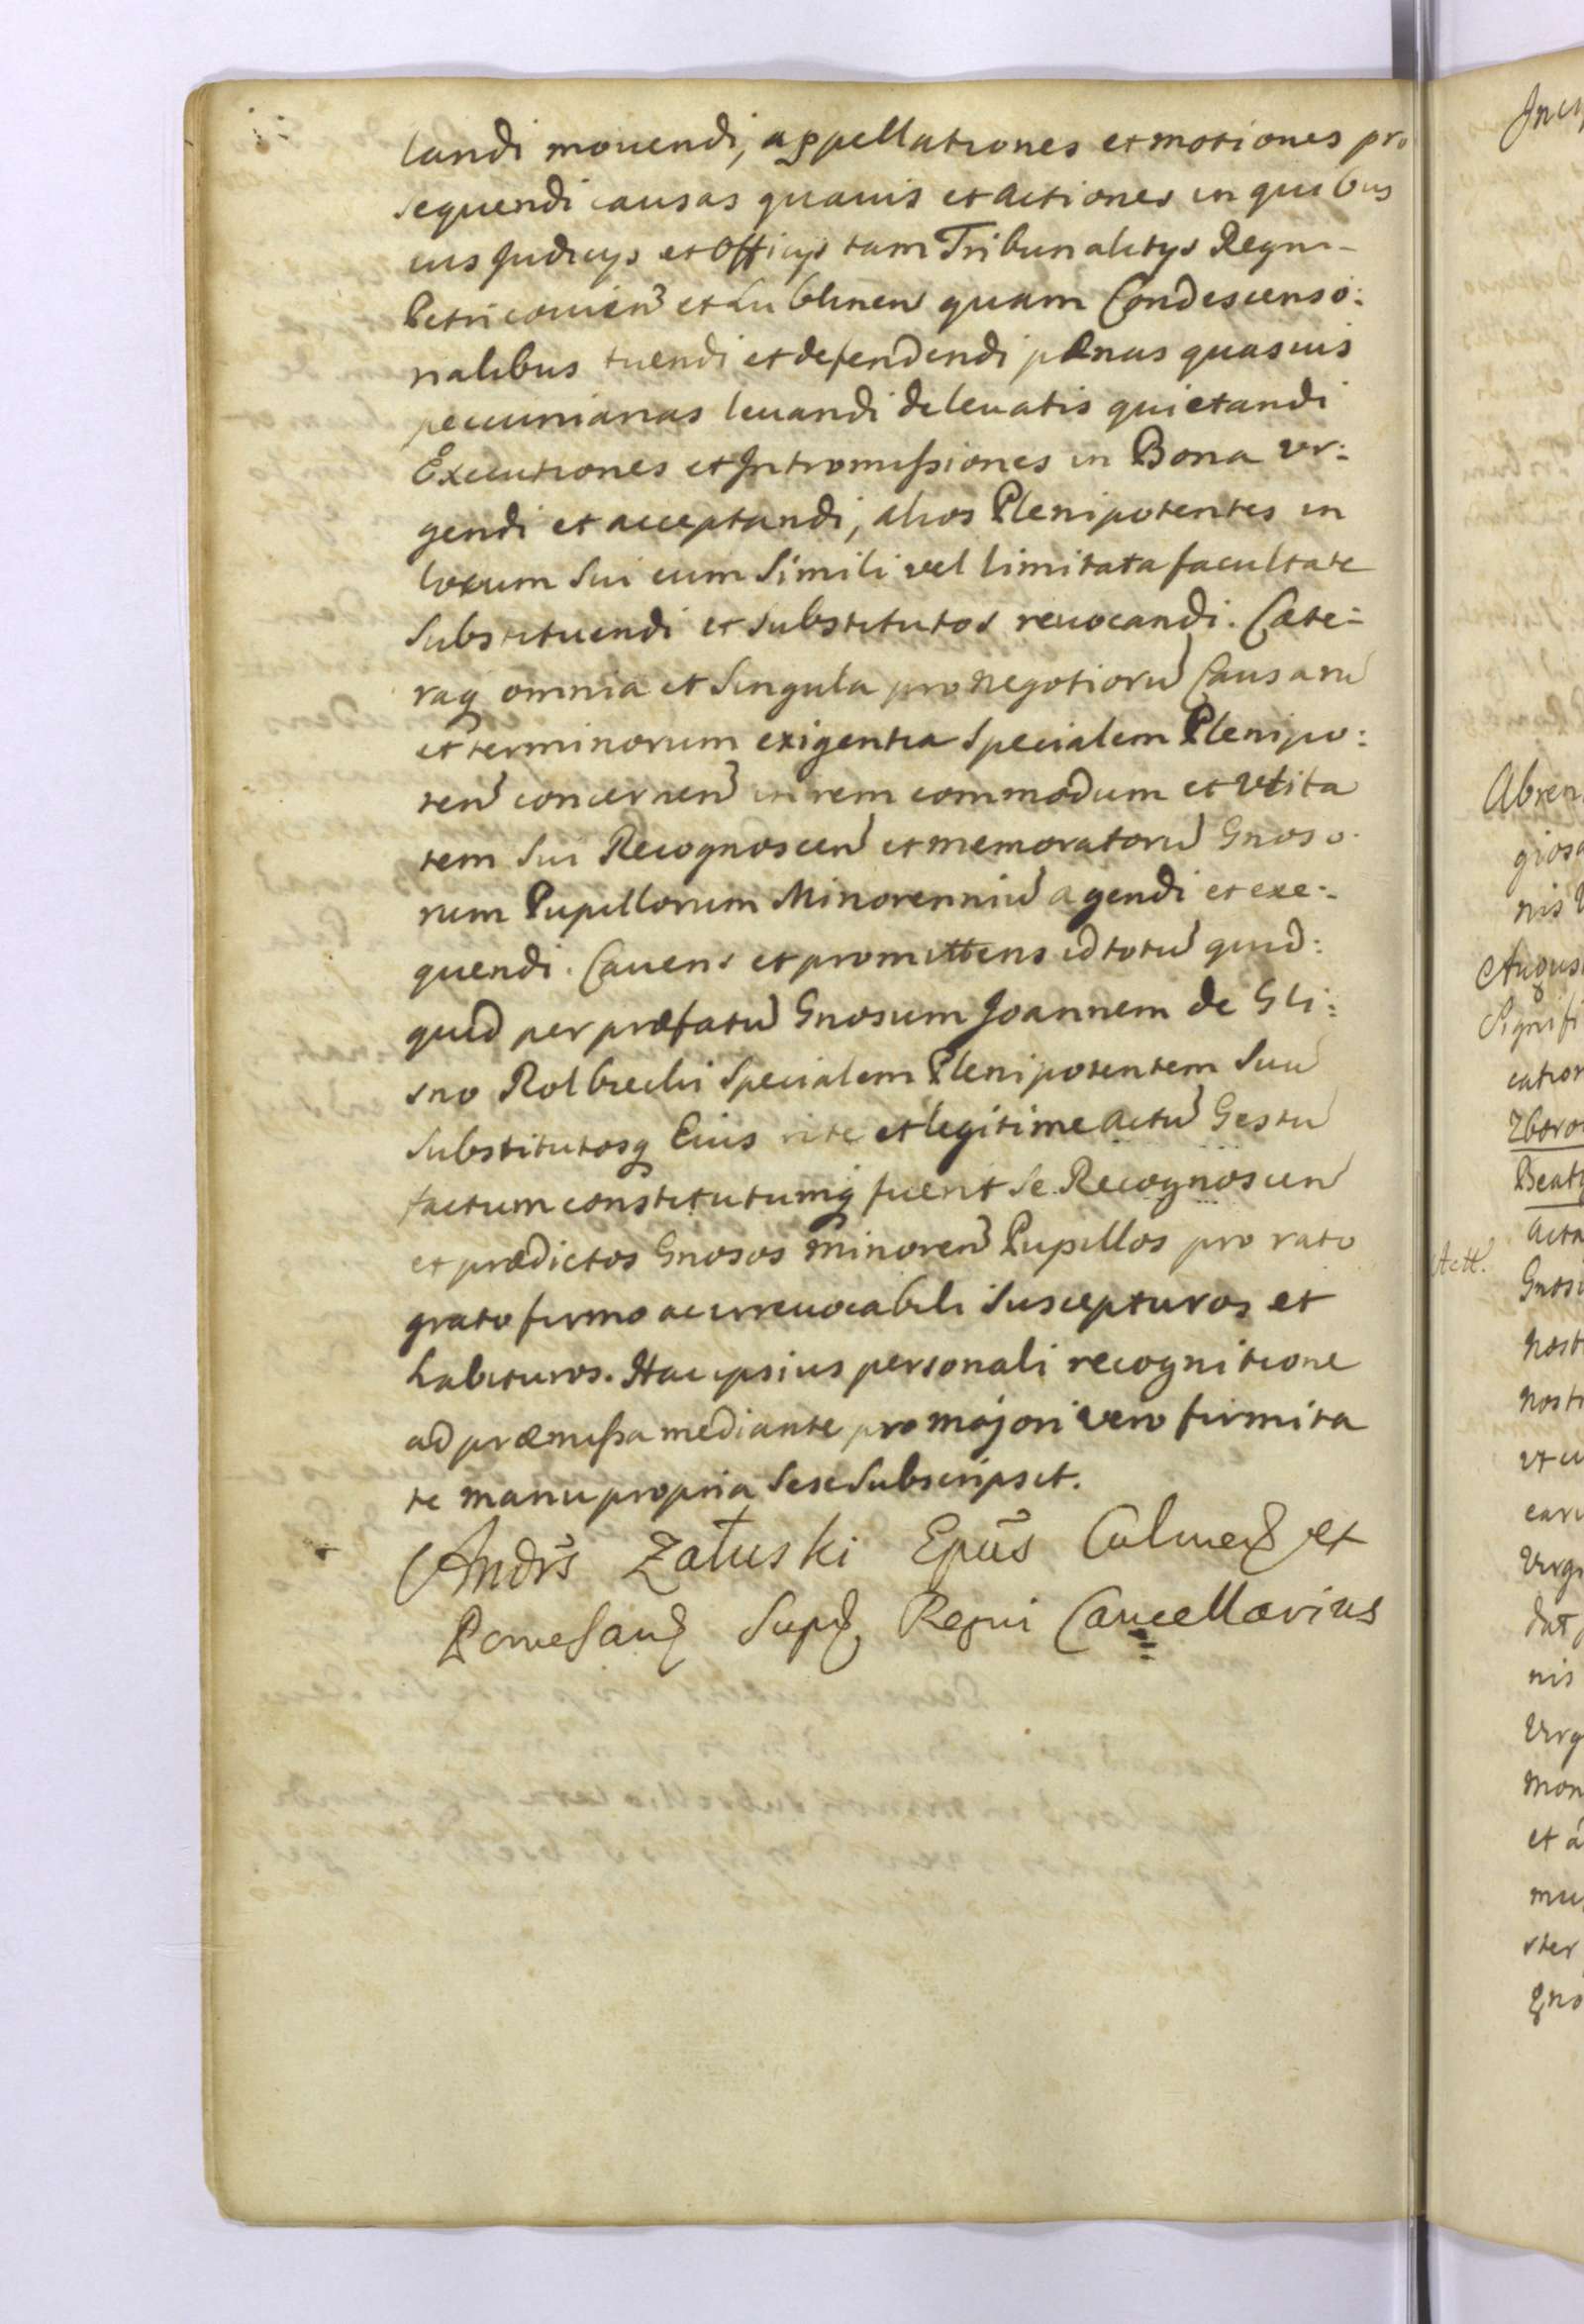 landi mouendi, appellationes et motiones pro
sequendi causas quasuis et actiones in quibus
uis Judicijs et Officijs tam Tribunalitijs Regni
Petricouien et Lublinen quam Condescenso:
nalibus tuendi et defendendi pœnas quasuis
pecuniarias leuandi de leuatis quietandi
Executiones et Intromissiones in Bona vr:
gendi et acceptandi, alios Plenipotentes in
locum sui cum simili vel limitata facultate
Substituendi et substitutos reuocandi. Cæte:
raq omnia et singula pro negotiorũ Causarũ
et terminorum exigentia specialem Plenipo:
ten concernen in rem commodum et vtilita
tem sui Recognoscen et memoratorũ Gnoso
rum Pupillorum Minorenniũ agendi et exe:
quendi. Cauens et promittens id totũ quid:
quid per præfatũ Gnosum Joannem de Gli:
sno Rolbiecki specialem Plenipotentem suũ
Substitutosq Eius rite et legitime actũ Gestũ
factum constitutumq fuerit se Recognoscen
et prædictos Gnosos minoren Pupillos pro rato
grato firmo ac irreuocabili suscepturos et
habituros. Hac ipsius personali recognitione
ad præmissa mediante pro majori vero firmita
te manu propria sese subscripsit.
Andrs Załuski Epũs Culmen et
Pomesan Supr Regni Cancellarius
Abren
giosa
nis
August
Signifi
cation
Zboro
Beat
acta
Actt.
Gnosi
nost
nost
et
Virg
dat
nis
Virg
mon
et a
mu
ter
gno